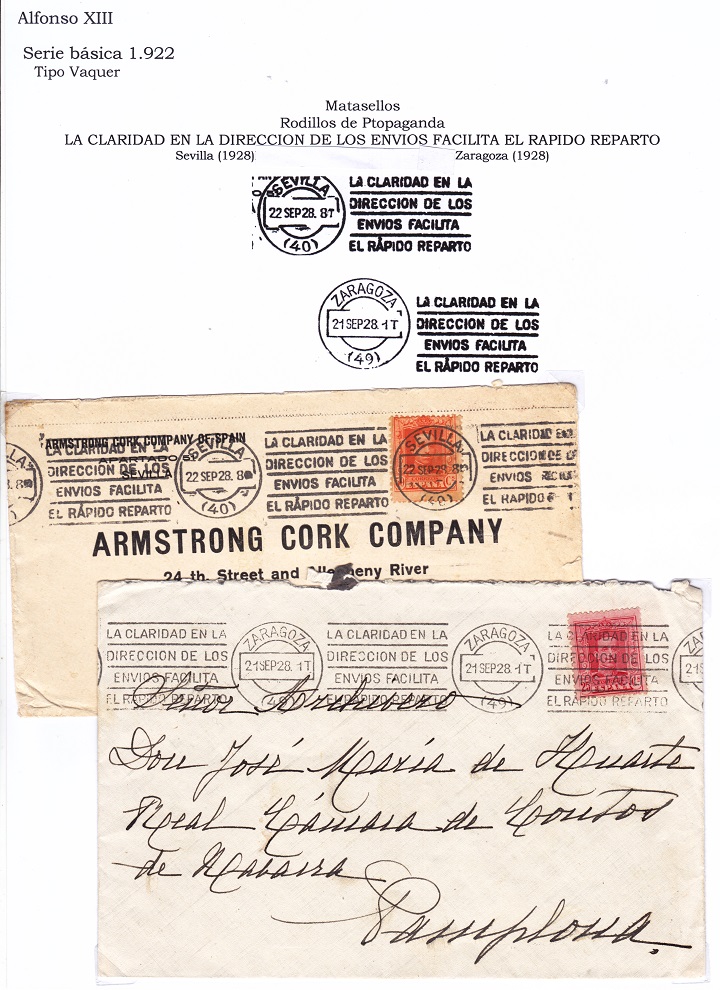 Alfonso XIII
Serie básica 1.922
Tipo Vaquer
Matasellos
Rodillos de Ptopaganda
LA CLARIDAD EN LA DIRECCION DE LOS ENVIOS FACILITA EL RAPIDO REPARTO
Sevilla (1928) Zaragoza (1928)
SEVILLA
22 SEP 28. 8T
(40)
LA CLARIDAD EN LA
DIRECCION DE LOS
ENVIOS FACILITA
EL RÁPIDO REPARTO
ZARAGOZA
21 SEP 28. 1T
(49)
LA CLARIDAD EN LA
DIRECCION DE LOS
ENVIOS FACILITA
EL RÁPIDO REPARTO
ARMSTRONG CORK COMPANY OF SPAIN
APARTADO
SEVILLA
LA CLARIDAD EN LA
DIRECCION DE LOS
ENVIOS FACILITA
EL RÁPIDO REPARTO
SEVILLA
22 SEP 28. 8
(40)
LA CLARIDAD EN LA
DIRECCION DE LOS
ENVIOS FACILITA
EL RÁPIDO REPARTO
SEVILLA
22 SEP 28. 8
(40)
LA CLARIDAD
DIRECCION DE
ENVIOS
EL RAPIDO
ARMSTRONG CORK COMPANY
24 th. Street and Allegheny River
LA CLARIDAD EN LA
DIRECCION DE LOS
ENVIOS FACILITA
EL RÁPIDO REPARTO
ZARAGOZA
21 SEP 28. 1T
(49)
LA CLARIDAD EN LA
DIRECCION DE LOS
ENVIOS FACILITA
EL RÁPIDO REPARTO
ZARAGOZA
21 SEP 28. 1T
(49)
LA CLARIDAD EN LA
DIRECCION DE LOS
ENVIOS FACILITA
EL RÁPIDO REPARTO
Señor Archivero
Don José María de Huarte
Real Cámara de Comptos
de Navarra
Pamplona.